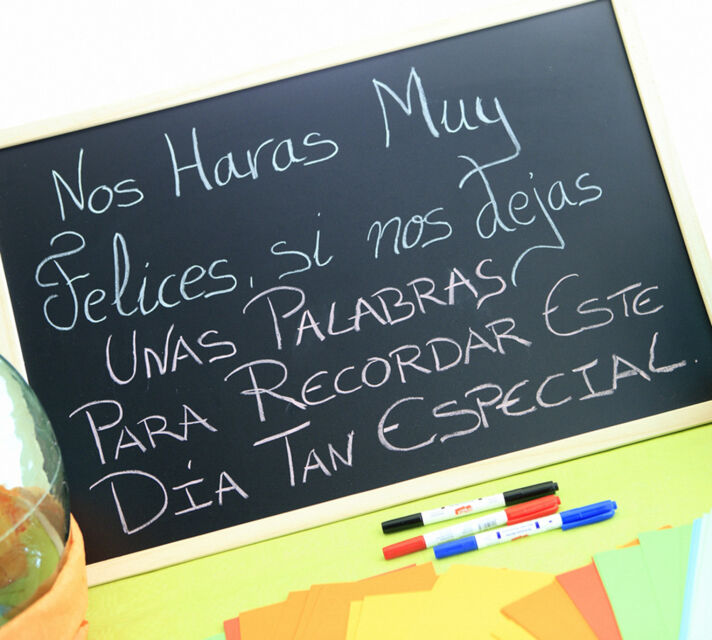 Nos Haras Muy
Felices, si nos dejas
UNAS PALABRAS
PARA RECORDAR ESTE
DÍA TAN ESPECIAL.